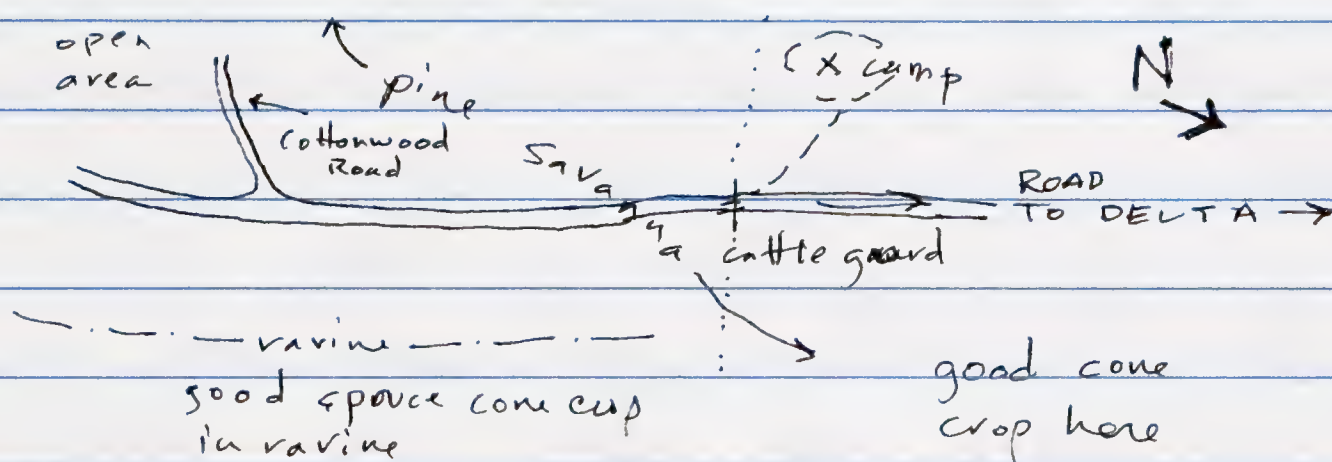 open
area
pine
Cottonwood
Road
X camp
N
ROAD
TO DELTA
cattle guard
ravine
good spruce cone crop
in ravine
good cone
crop here